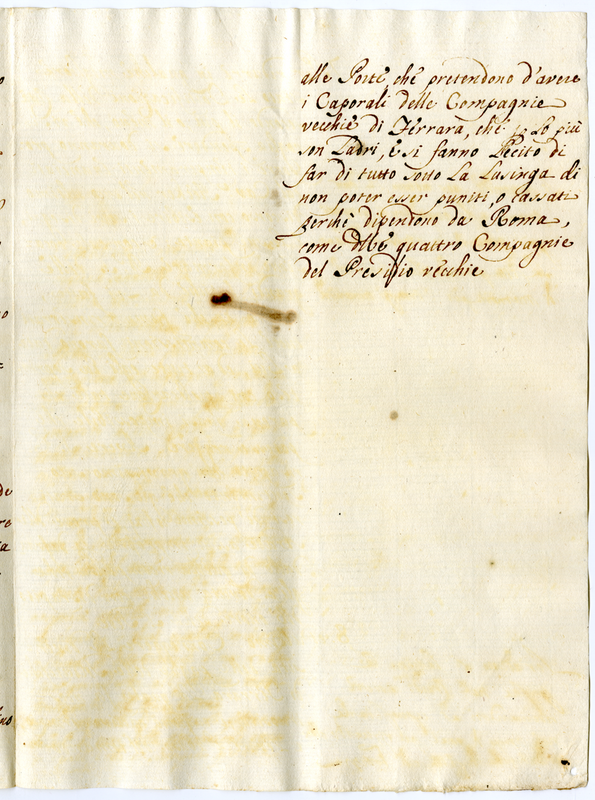 alle Porte che pretendono d'avere
i Caporali delle Compagnie
vecchie di Ferrara, che p. lo più
son Ladri, e si fanno Lecito di
far di tutto sotto La Lusinga di
non poter esser puniti, o cassati
perchè dipendono da Roma,
come dlle quattro Compagnie
del Presidio vecchie